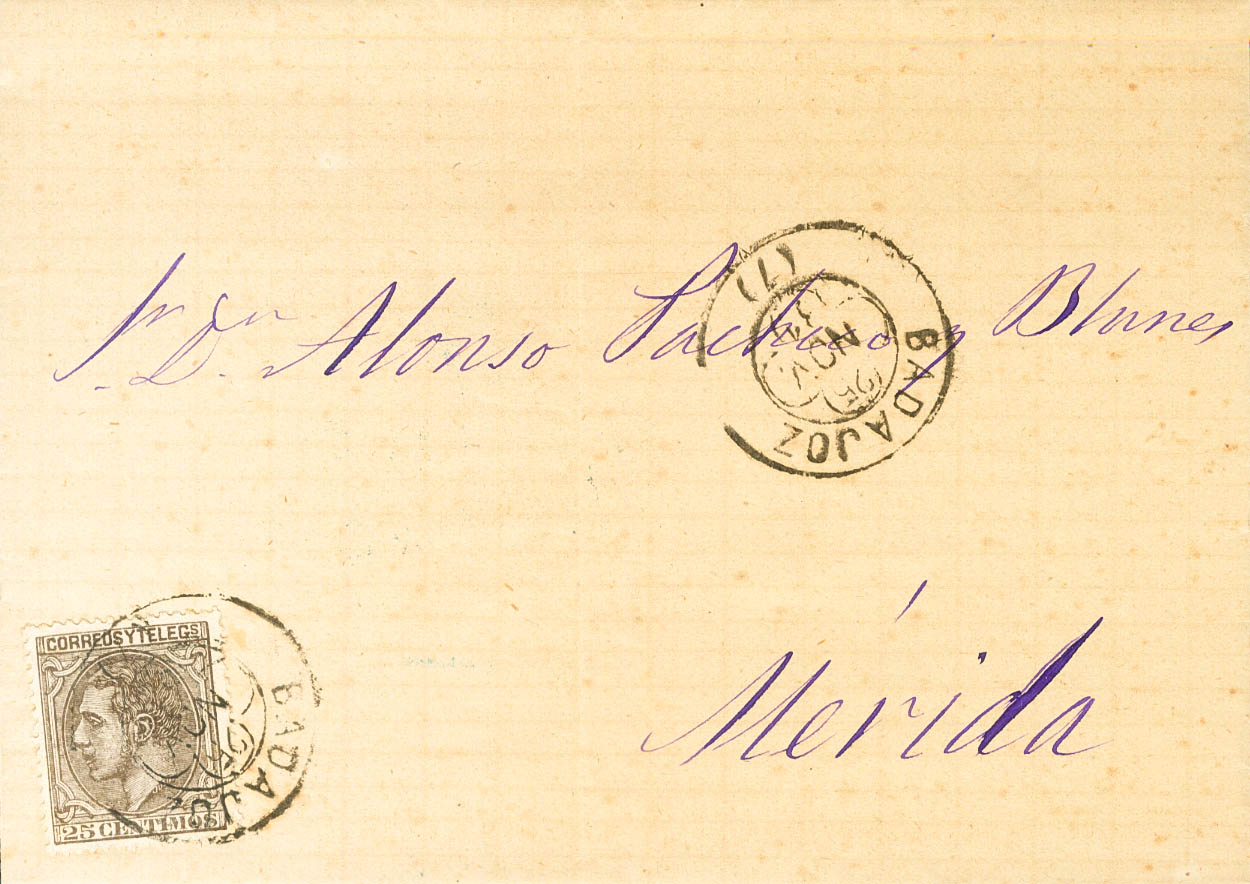 Sr. Dn. Alonso Pacheco y Blanes
BADAJOZ
(25)
NOV.
Mérida
CORREOS Y TELEGS
25 CENTIMOS
BADAJOZ